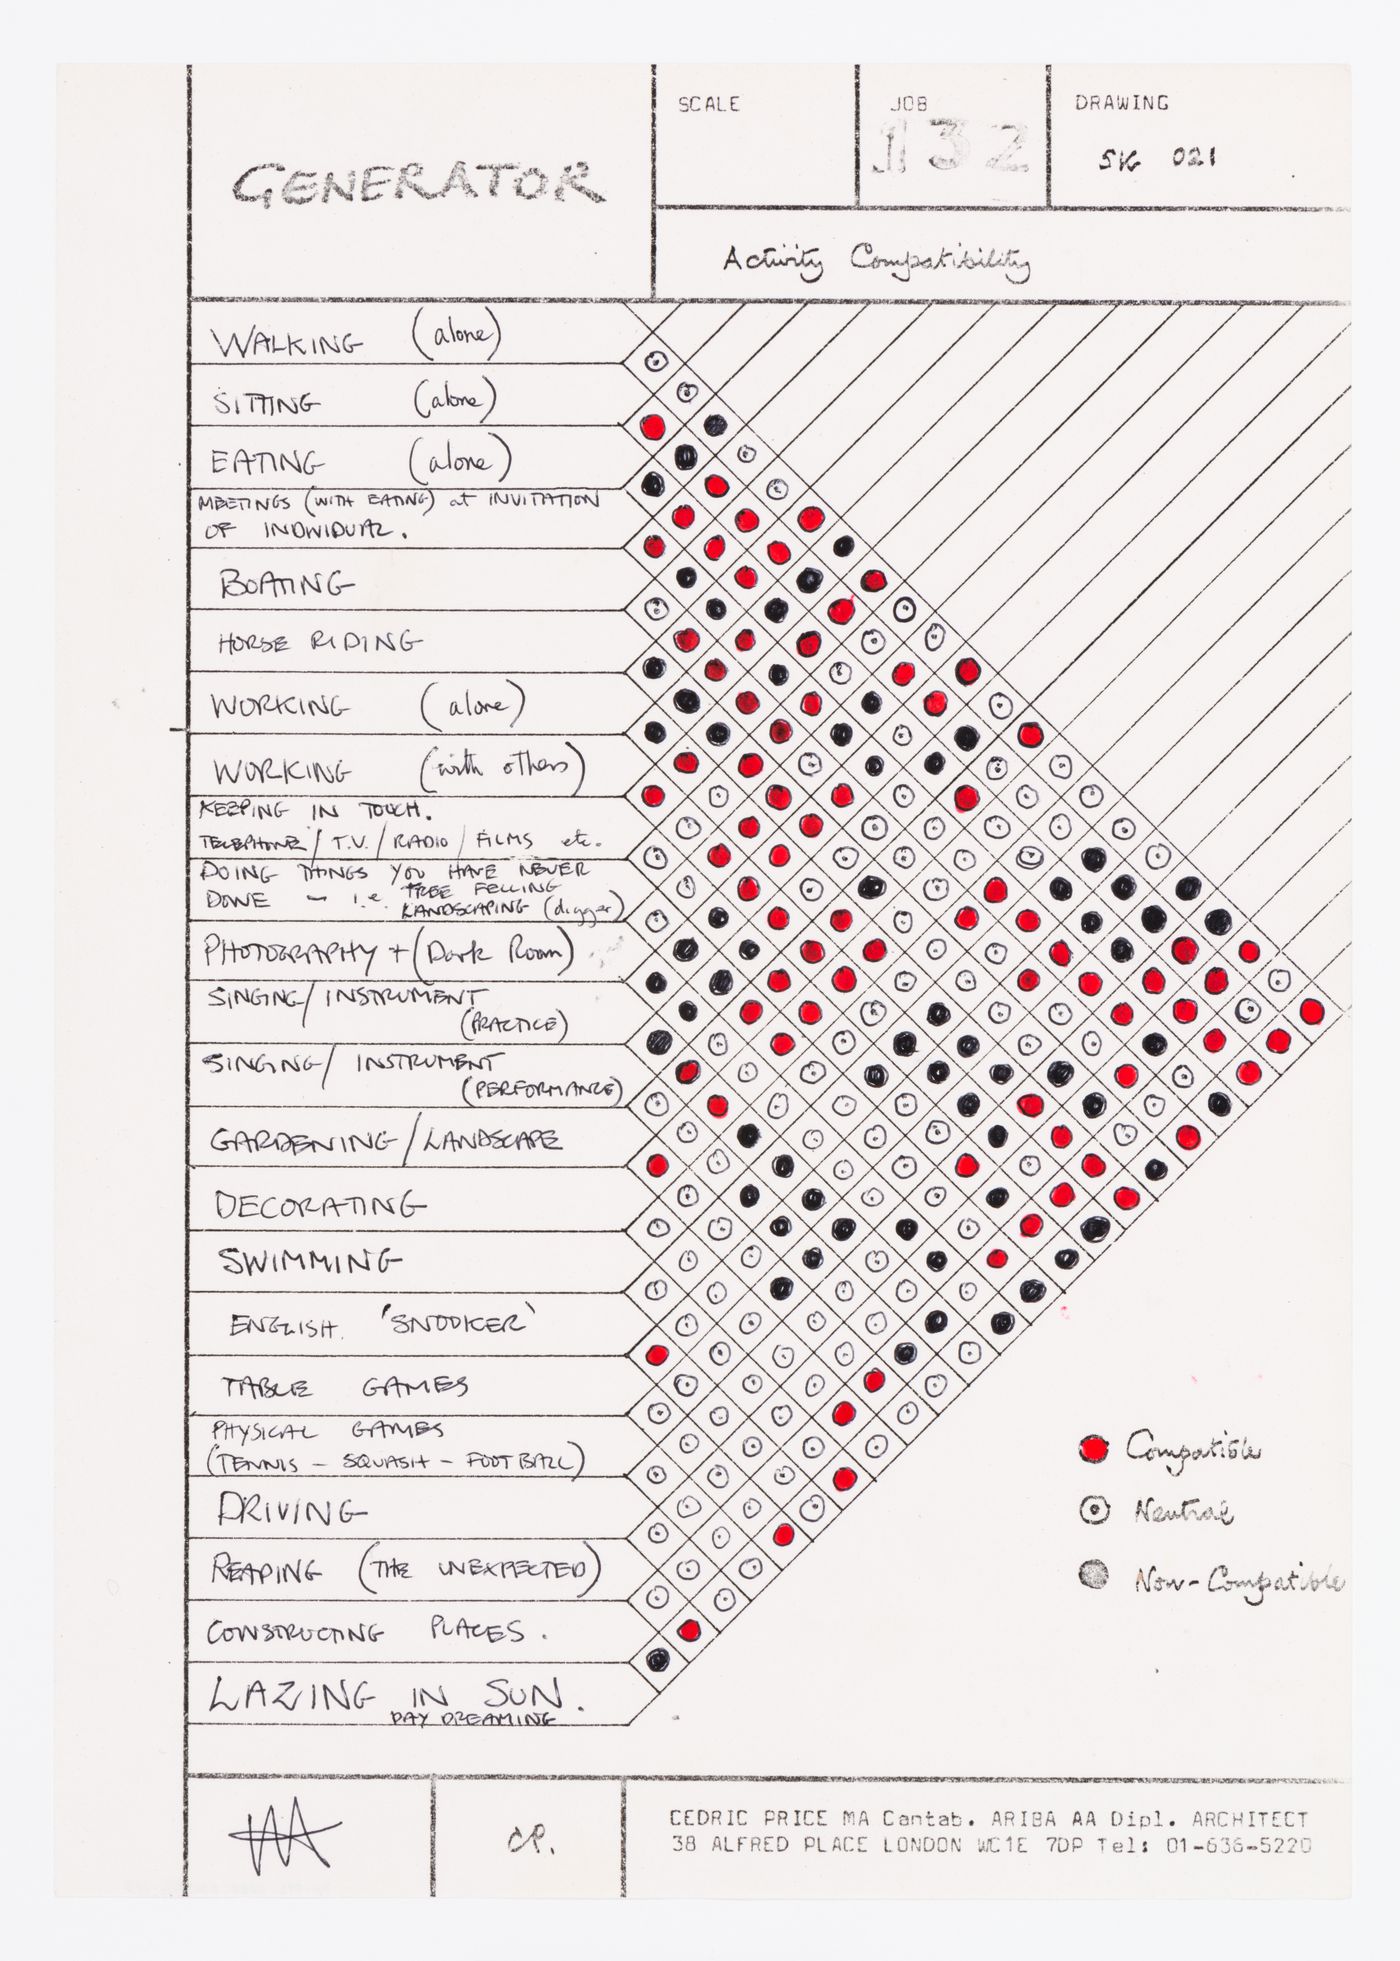 GENERATOR
SCALE
JOB
132
DRAWING
SK 021
Activity Compatibility
WALKING (alone)
SITTING (alone)
EATING (alone)
MEETINGS (WITH EATING) at INVITATION
OF INDIVIDUAL.
BOATING
HORSE RIDING
WORKING (alone)
WORKING (with others)
KEEPING IN TOUCH.
TELEPHONE / T.V. / RADIO / FILMS etc.
DOING THINGS YOU HAVE NEVER
DONE - i.e. TREE FELLING
LANDSCAPING (digger)
PHOTOGRAPHY + (Dark Room)
SINGING / INSTRUMENT
(PRACTICE)
SINGING / INSTRUMENT
(PERFORMANCE)
GARDENING / LANDSCAPE
DECORATING
SWIMMING
ENGLISH 'SNOOKER'
TABLE GAMES
PHYSICAL GAMES
(TENNIS - SQUASH - FOOTBALL)
DRIVING
READING (THE UNEXPECTED)
CONSTRUCTING PLACES.
LAZING IN SUN.
DAY DREAMING
Compatible
Neutral
Non-Compatible
CP.
CEDRIC PRICE MA Cantab. ARIBA AA Dipl. ARCHITECT
38 ALFRED PLACE LONDON WC1E 7DP Tel: 01-636-5220